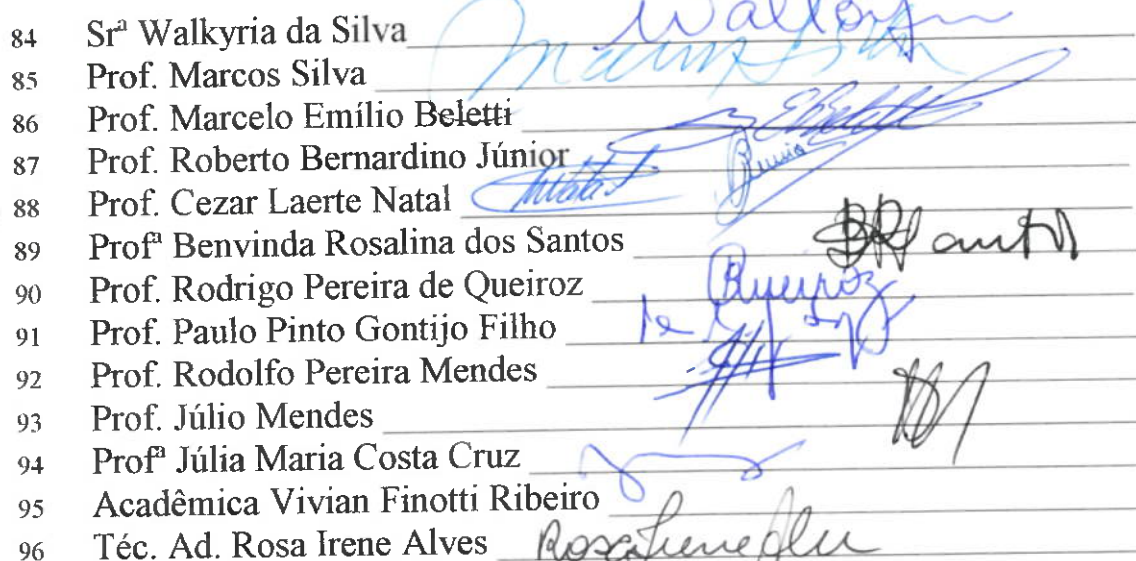 84 Srª Walkyria da Silva
85 Prof. Marcos Silva
86 Prof. Marcelo Emílio Beletti
87 Prof. Roberto Bernardino Júnior
88 Prof. Cezar Laerte Natal
89 Profª Benvinda Rosalina dos Santos
90 Prof. Rodrigo Pereira de Queiroz Queiroz
91 Prof. Paulo Pinto Gontijo Filho
92 Prof. Rodolfo Pereira Mendes
93 Prof. Júlio Mendes
94 Profª Júlia Maria Costa Cruz
95 Acadêmica Vivian Finotti Ribeiro
96 Téc. Ad. Rosa Irene Alves Rosa Irene Alves